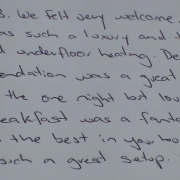 s. We felt very welcome,
as such a luxury and t
d underfloor heating. De
endation was a great
the one night but lov
eakfast was a fanta
the best in your boo
such a great setup.